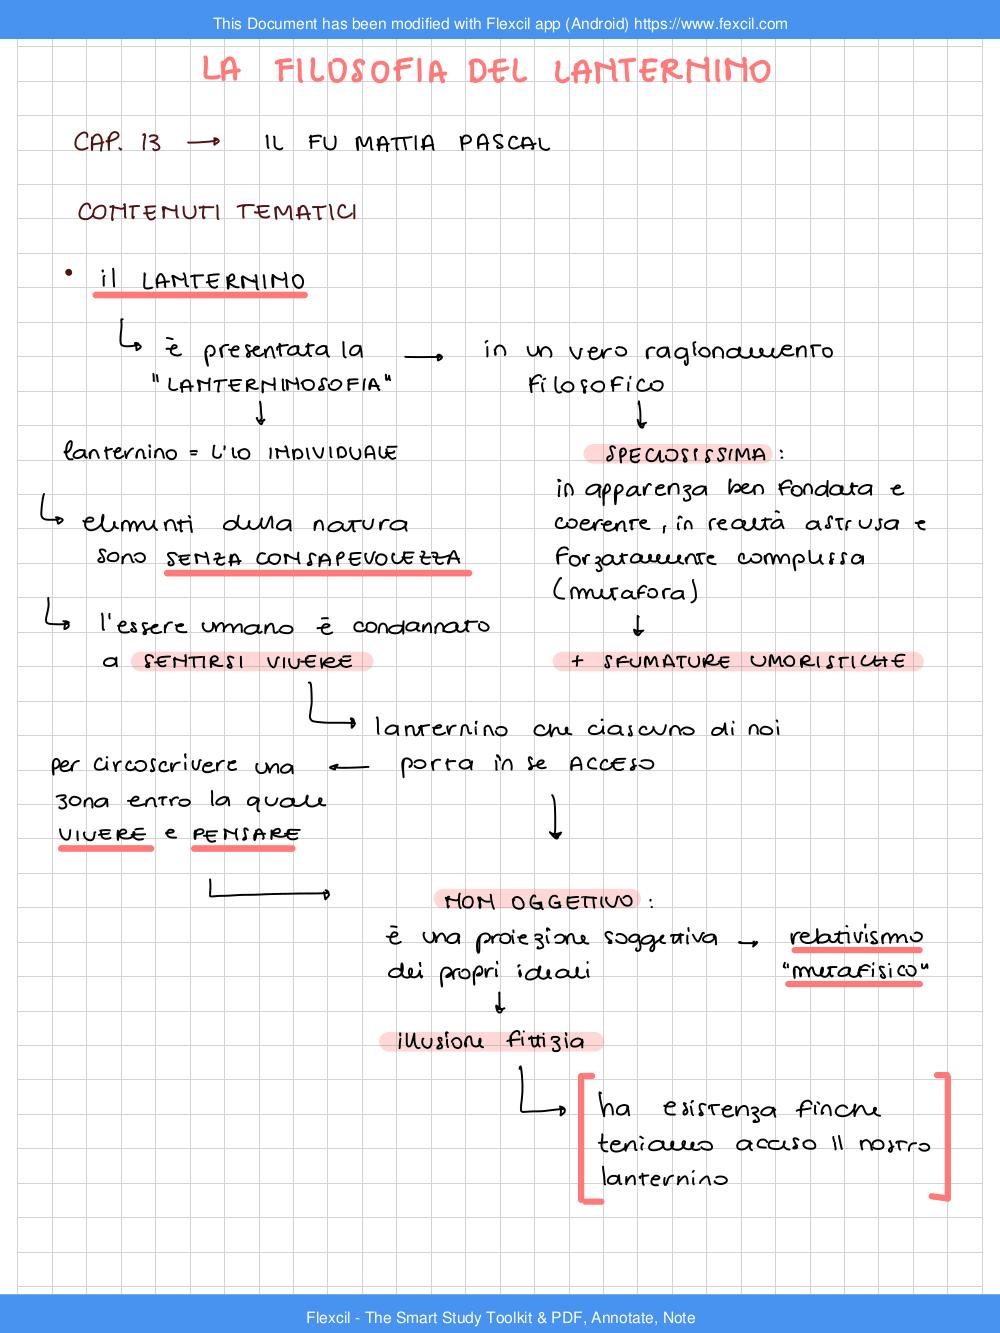 This Document has been modified with Flexcil app (Android) https://www.fexcil.com
LA FILOSOFIA DEL LANTERNINO
CAP. 13 → IL FU MATTIA PASCAL
CONTENUTI TEMATICI
• il LANTERNINO
è presentata la → in un vero ragionamento
"LANTERNINOSOFIA" filosofico
lanternino = L'IO INDIVIDUALE
SPECIOSISSIMA :
in apparenza ben fondata e
coerente, in realtà astrusa e
forzatamente complessa
(metafora)
+ SFUMATURE UMORISTICHE
elementi della natura
sono SENZA CONSAPEVOLEZZA
l'essere umano è condannato
a SENTIRSI VIVERE
lanternino che ciascuno di noi
porta in se ACCESO
per circoscrivere una
zona entro la quale
VIVERE e PENSARE
NON OGGETTIVO :
è una proiezione soggettiva → relativismo
dei propri ideali "metafisico"
illusione fittizia
ha esistenza finche
teniamo acceso il nostro
lanternino
Flexcil - The Smart Study Toolkit & PDF, Annotate, Note